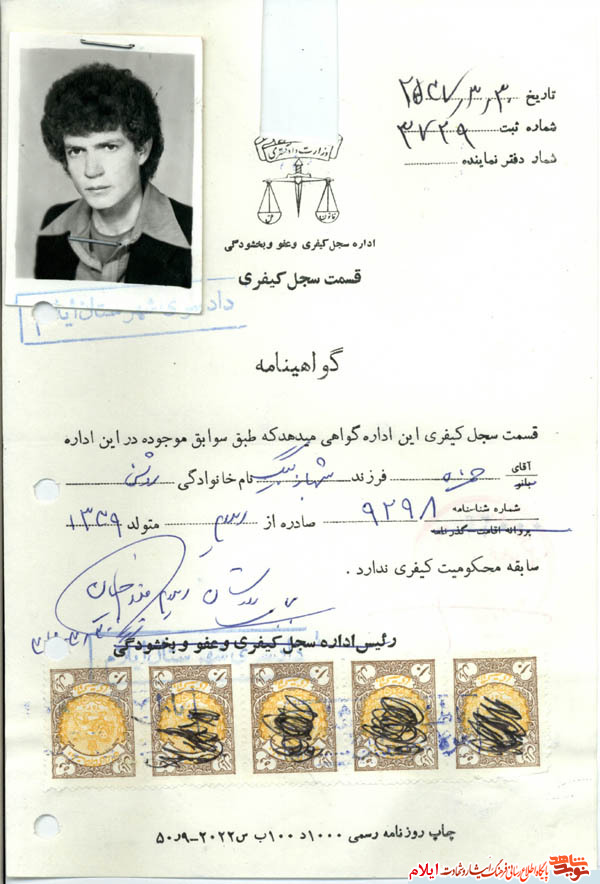 تاریخ ۲۵۳۷٫۳٫۳۰
شماره ثبت ۳۷۲۹
شمار دفتر نماینده
وزارت دادگستری
قانون
حق
اداره سجل کیفری و عفو و بخشودگی
قسمت سجل کیفری
دادسرای شهرستان ایلام
گواهینامه
قسمت سجل کیفری این اداره گواهی میدهد که طبق سوابق موجوده در این اداره
آقای
بانو
حمزه فرزند شهباز بیگ نام خانوادگی روشنی
شماره شناسنامه
پروانه اقامت - گذرنامه
۹۲۹۸ صادره از متولد ۱۳۳۹
سابقه محکومیت کیفری ندارد .
رئیس اداره سجل کیفری و عفو و بخشودگی
چاپ روزنامه رسمی ۱۰۰۰د ۱۰۰ب س۲۰۲۲-۵۰٫۹
نوید شاهد
پایگاه اطلاع رسانی فرهنگ ایثار و شهادت ایلام